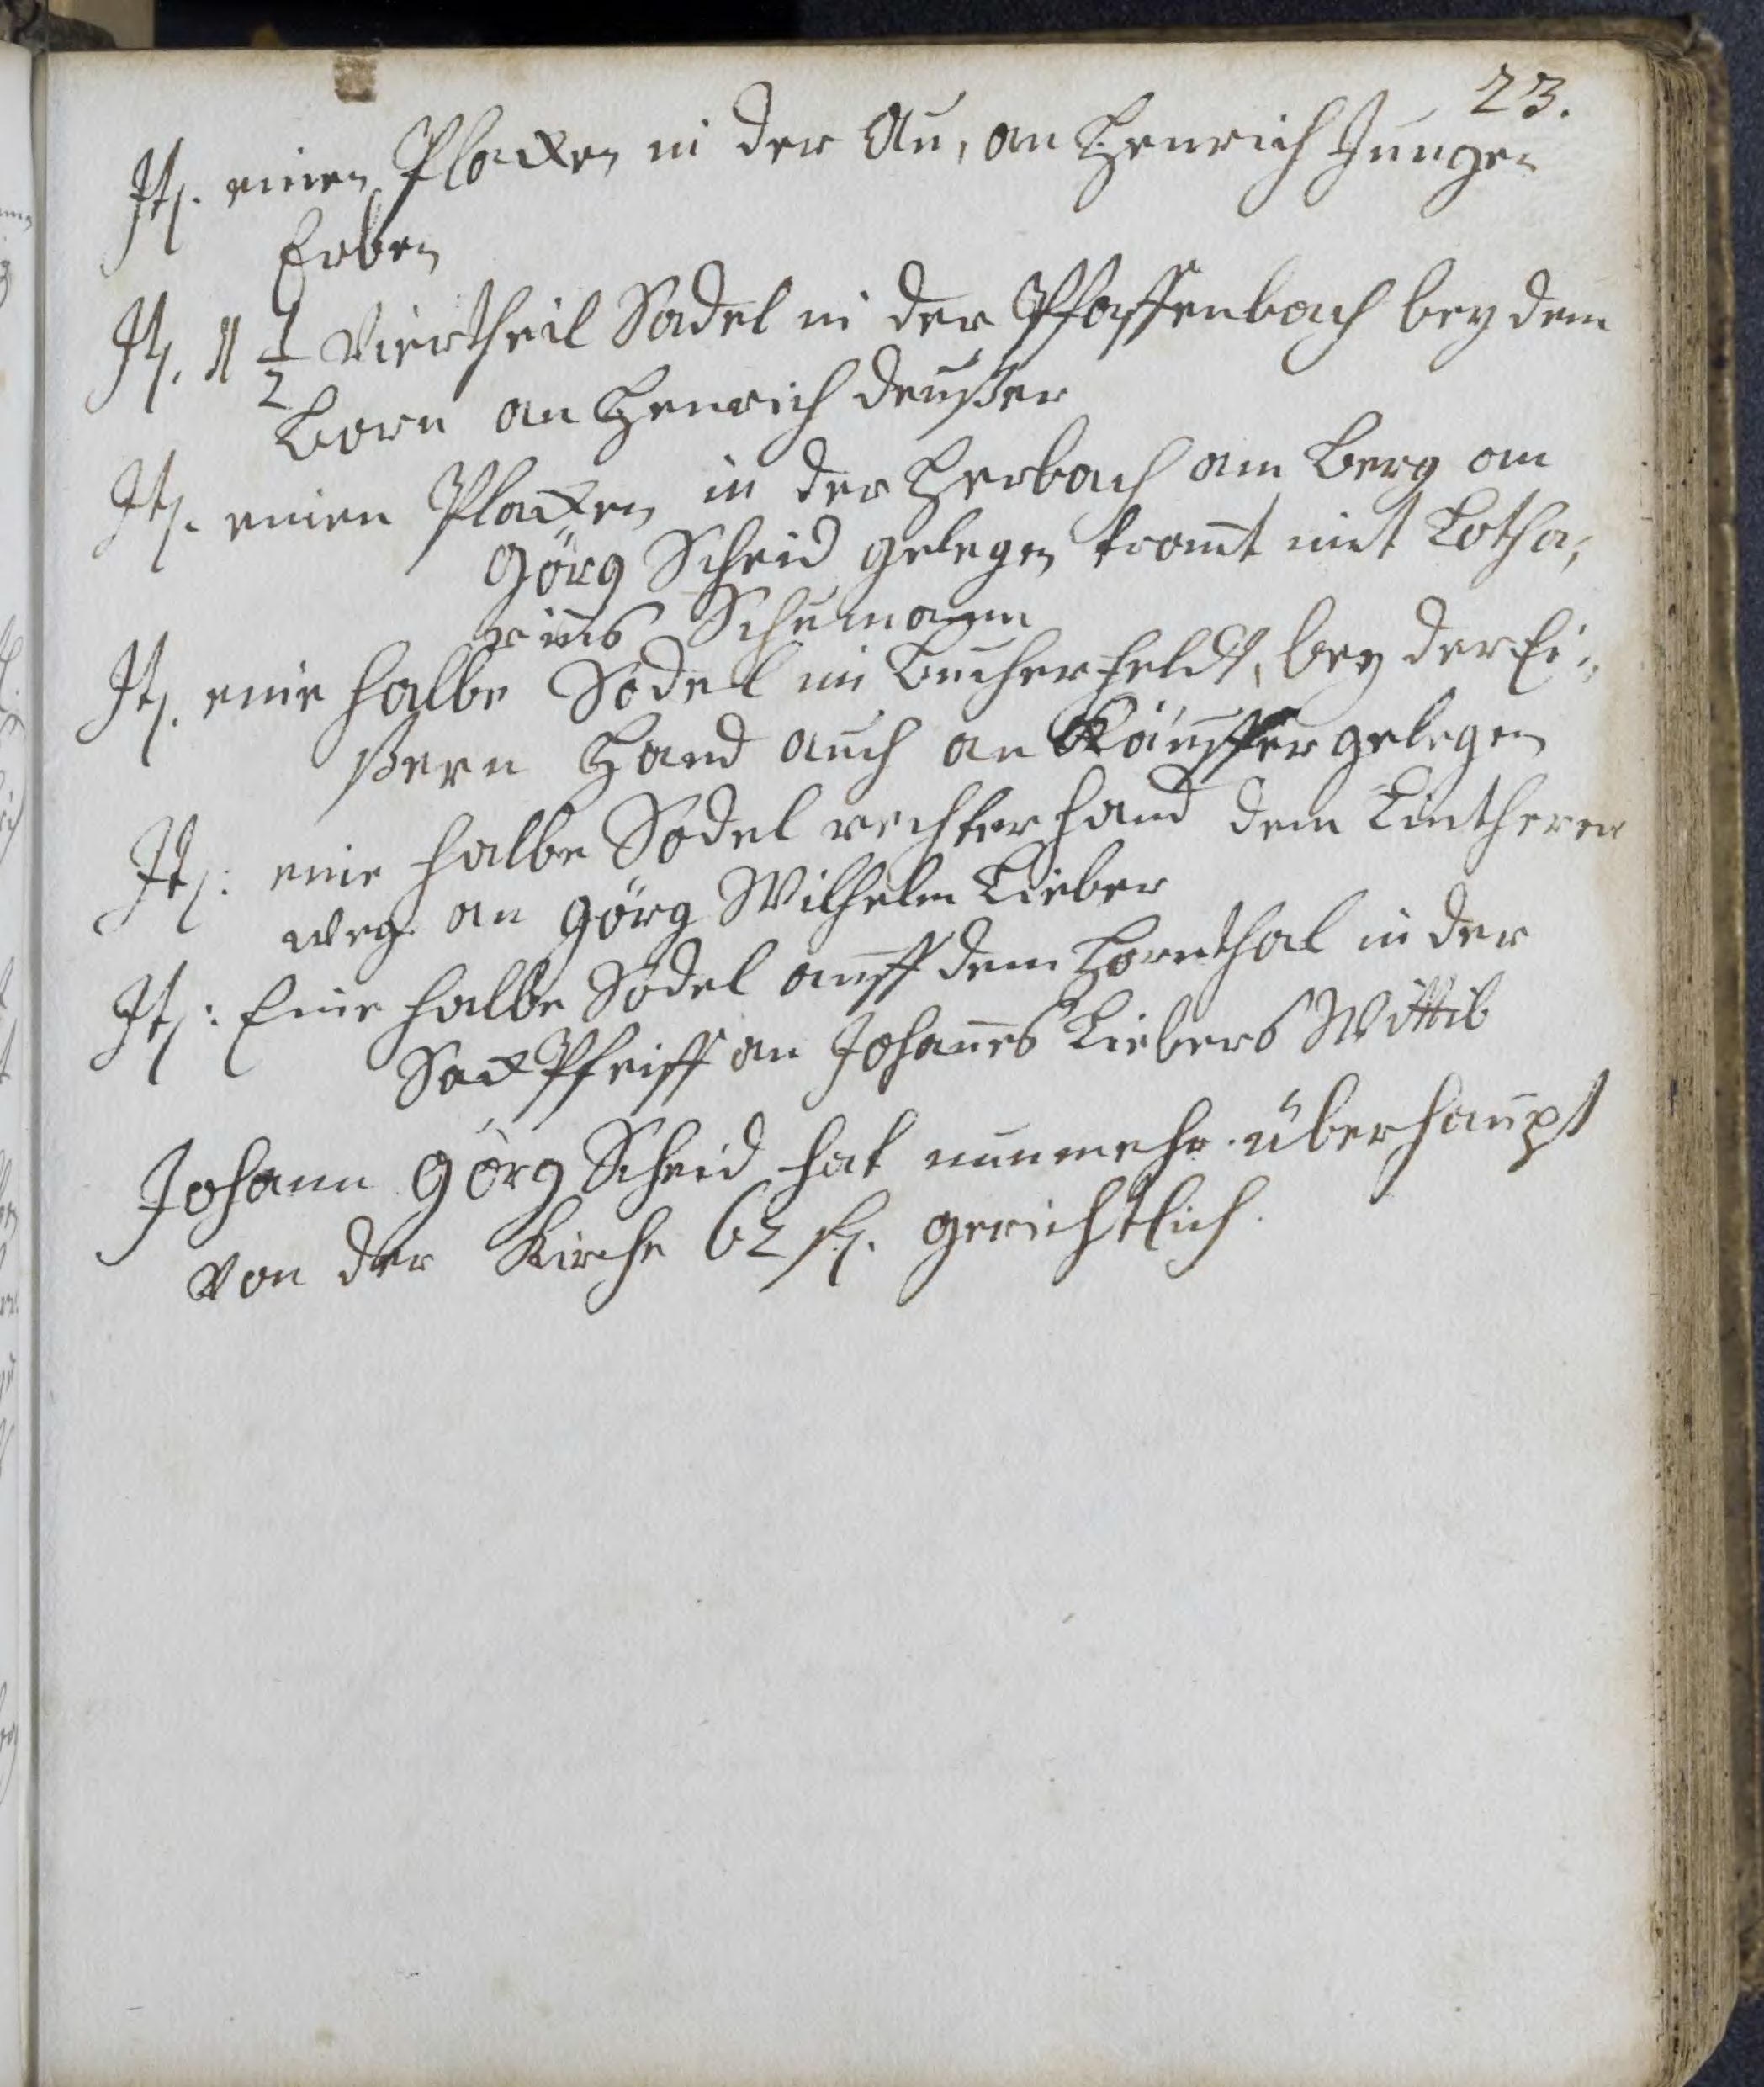 23.
It. einen Placken in der Au, an Henrich Jungen
Erben
It. 1 1/2 Viertheil Sadel in der Pfaffenbach bey dem
Born an Henrich Deußer
It. einen Placken in der Herbach am Berg an
Görg Scheid gelegen kom̄t mit Lotha,
rius Schumann
It. eine halbe Sodel im Bucherfeldt, bey der Ei,,
ßern Hand auch an Käuffer gelegen
It: eine halbe Sodel rechterhand dem Linther
weg an Görg Wilhelm Lieber
It: Eine halbe Sodel auff dem Hornthal in der
SackPfeiff an Johan̄es Liebers Wittib
Johann Görg Scheid hat nunmehr überhaupt
von der Kirche 62 fl. gerichtlich.